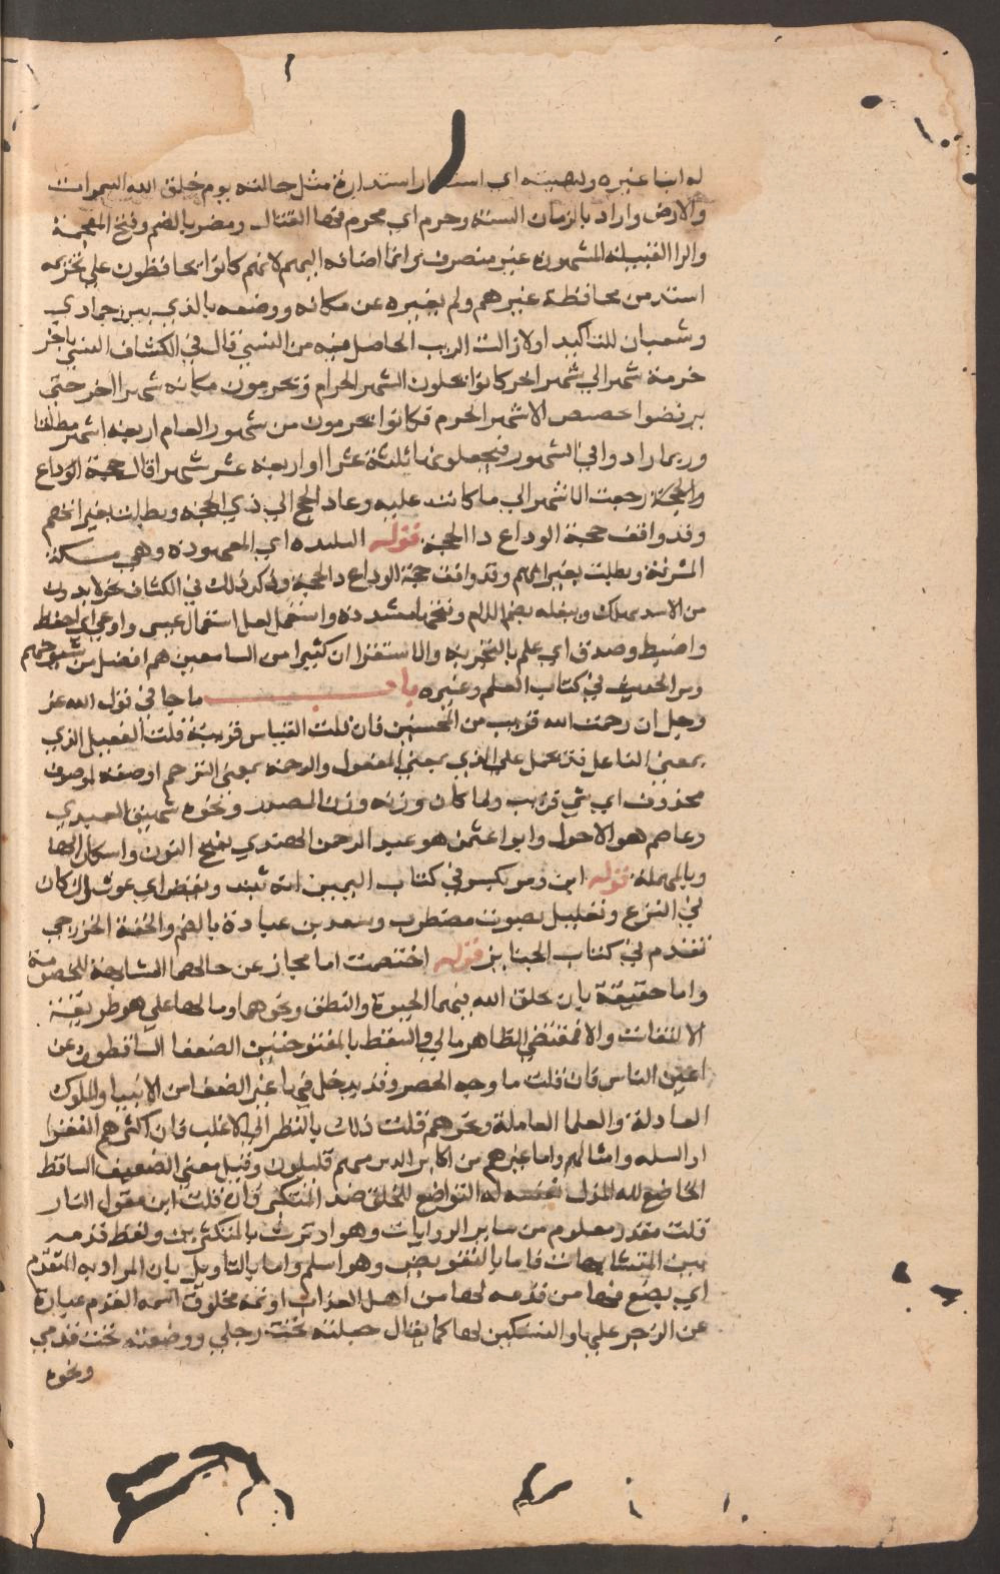 استدار استدارة مثل حالته يوم خلق الله السموات
والارض واراد بالزمان السنة وحرم اي محرم فيها القتال ومضر بالضم وفتح المعجمة
والرا القبيلة المشهورة غير منصرف وانما اضافه اليهم لانهم كانوا يحافظون على تحريمه
اشد من محافظة غيرهم ولم يغيره عن مكانه ووصفه بالذي بين جمادي
وشعبان للتاكيد او لازالت الريب الحاصل فيه من النسي قال في الكشاف النسي تاخر
حرمة شهر الي شهر اخر كانوا يحلون الشهر الحرام ويحرمون مكانه شهرا اخر حتى
رفضوا خصيص الاشهر الحرم فكانوا يحرمون من شهور العام اربعة اشهر مطلقا
وربما زادوا في الشهور فيجعلونها ثلثة عشر او اربعة عشر شهرا قال حجة الوداع
رجعت الاشهر الي ما كانت عليه وعاد الحج الي ذي الحجه وبطلت
وقد وافقت حجة الوداع ذا الحجة قوله البلده اي المعهودة وهي مكة
المشرفة وبطلت وقد وافقت حجة الوداع ذا الحجة وذكر ذلك في الكشاف
ويفله بضم اللام وفتحها مشددة واستعمل لعل استعمال عسى واوعي اي احفظ
واضبط وصدق اي علم بالتجربه والاستقرا ان كثيرا من السامعين هم افضل من شيوخهم
ومر الحديث في كتاب العلم وغيره باب ما جا في قول الله عز
وجل ان رحمت الله قريب من المحسنين فان قلت القياس قريبة قلت الفعيل الذي
بمعنى الفاعل قد يحمل على الذي بمعنى المفعول والرحمة بمعنى الترحم او صفة لموصوف
محذوف اي شي قريب ولما كان وزنه وزن المصدر ونحوه شهيق
وعاصم هو الاحول وابوا عثمن هو عبد الرحمن الهندي بفتح النون واسكان الها
وبالمهملة قوله ابن ومر في كتاب
في النزع وتقليل بصوت مضطرب وسعد بن عبادة بالضم والخفة الخزرجي
تقدم في كتاب الجنايز قوله اختصمت اما مجاز عن حالهما المشابهة للخصومة
واما حقيقة بان يخلق الله فيهما الحيوة والنطق ونحوهما وما لها على هو طريقة
الالتفات والا فمقتضي الظاهر مالي والسقط بالمفتوحتين الضعفا الساقطون عن
اعين الناس فان قلت ما وجه الحصر وقد يدخل فيها غير الضعفا من الانبيا والملوك
العادلة والعلما العاملة ونحوهم قلت ذلك بالنظر الي الاغلب فان اكثرهم الفقرا
وامثالهم واما غيرهم من اكابر الدين فهم قليلون وقيل معنى الضعيف الساقط
الخاضع لله المذل نفسه له المتواضع للخلق ضد المتكبر فان قلت اين مقول النار
قلت مقدر معلوم من ساير الروايات وهو اوترت بالمتكبرين ولفظ قدمه
من المتشابهات فاما بالتفويض وهو اسلم واما بالتاويل بان المراد به المتقدم
اي يضع فيها من قدمه لها من اهل العذاب او ثمه مخلوق اسمه القدم او عبارة
عن الزجر عليها والتسكين لها كما يقال جعلته تحت رجلي ووضعته تحت قدمي
ونحوه